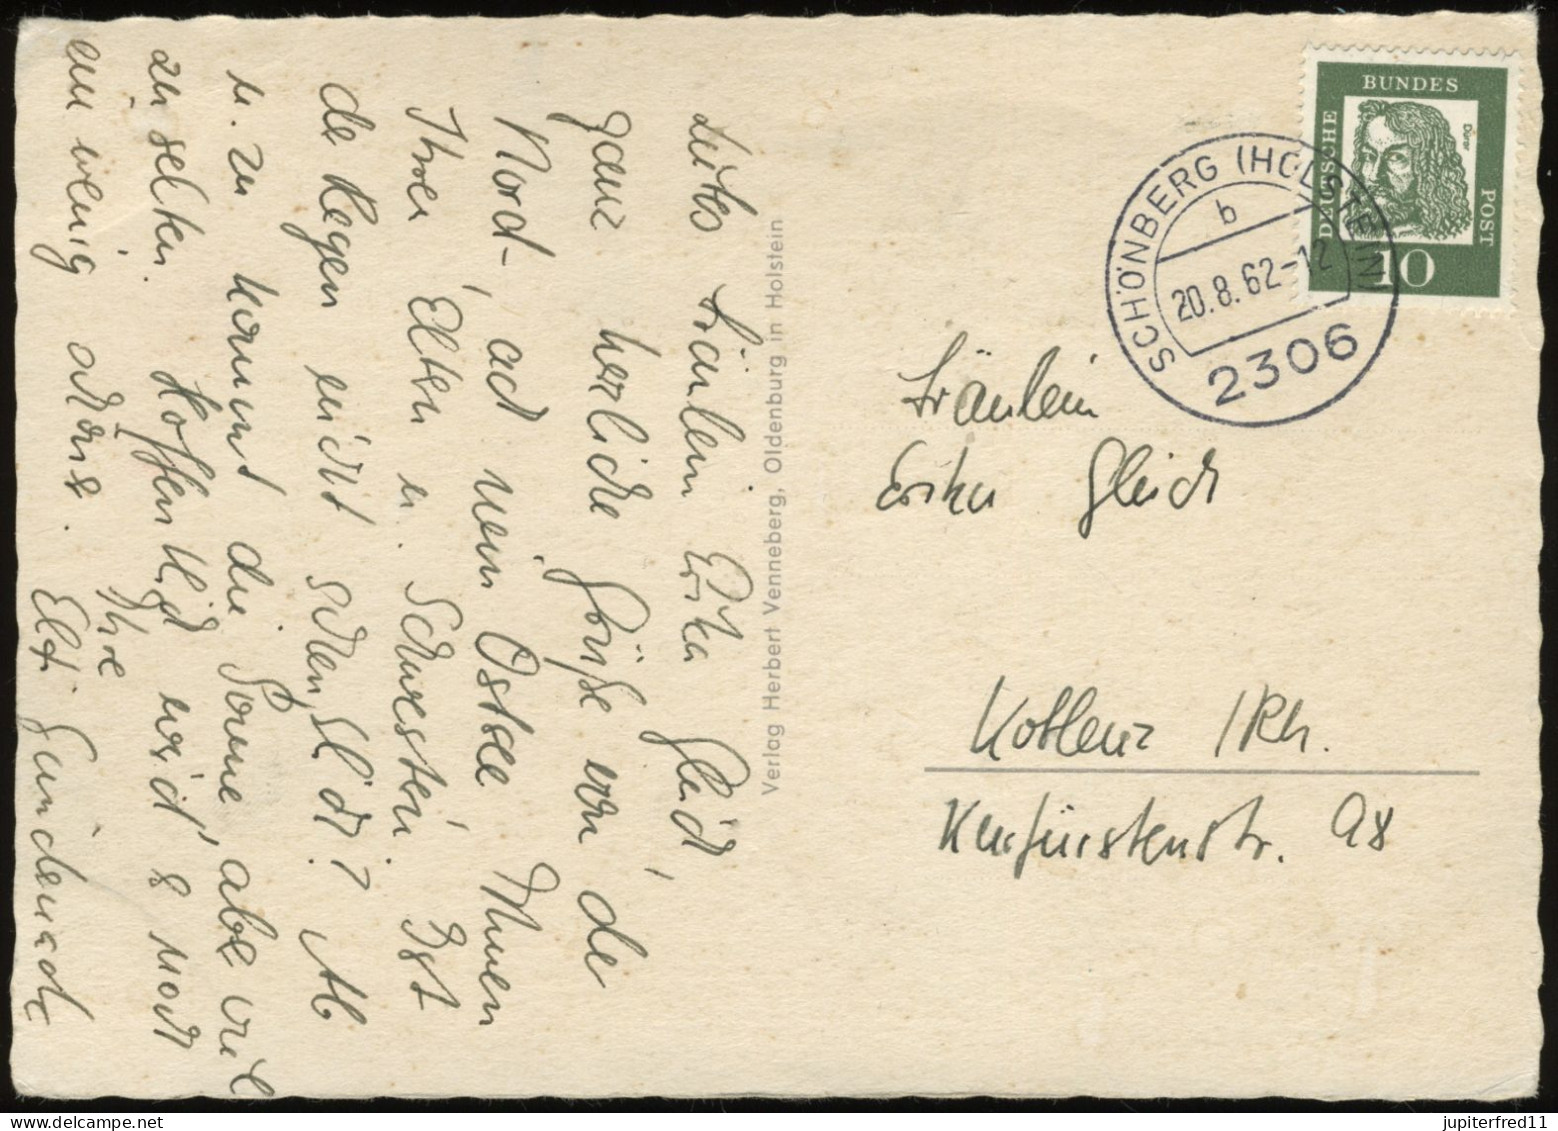 Liebes Fräulein Erika Gleich,
ganz herzliche Grüße von de
Nord-, ach nein Ostsee Ihnen
Ihren Eltern u. Schwestern. Ist
de Regen nicht scheußlich? Ab
u. zu kommt die Sonne, aber viel
zu selten. Hoffentlich wird's noch
ein wenig anders.
Ihre
Elt
Verlag Herbert Venneberg, Oldenburg in Holstein
DEUTSCHE BUNDES POST
Dürer
10
SCHÖNBERG (HOLSTEIN)
b
20.8.62-12
2306
Fräulein
Erika Gleich
Koblenz /Rh.
Kurfürstenstr. 98
jupiterfred11